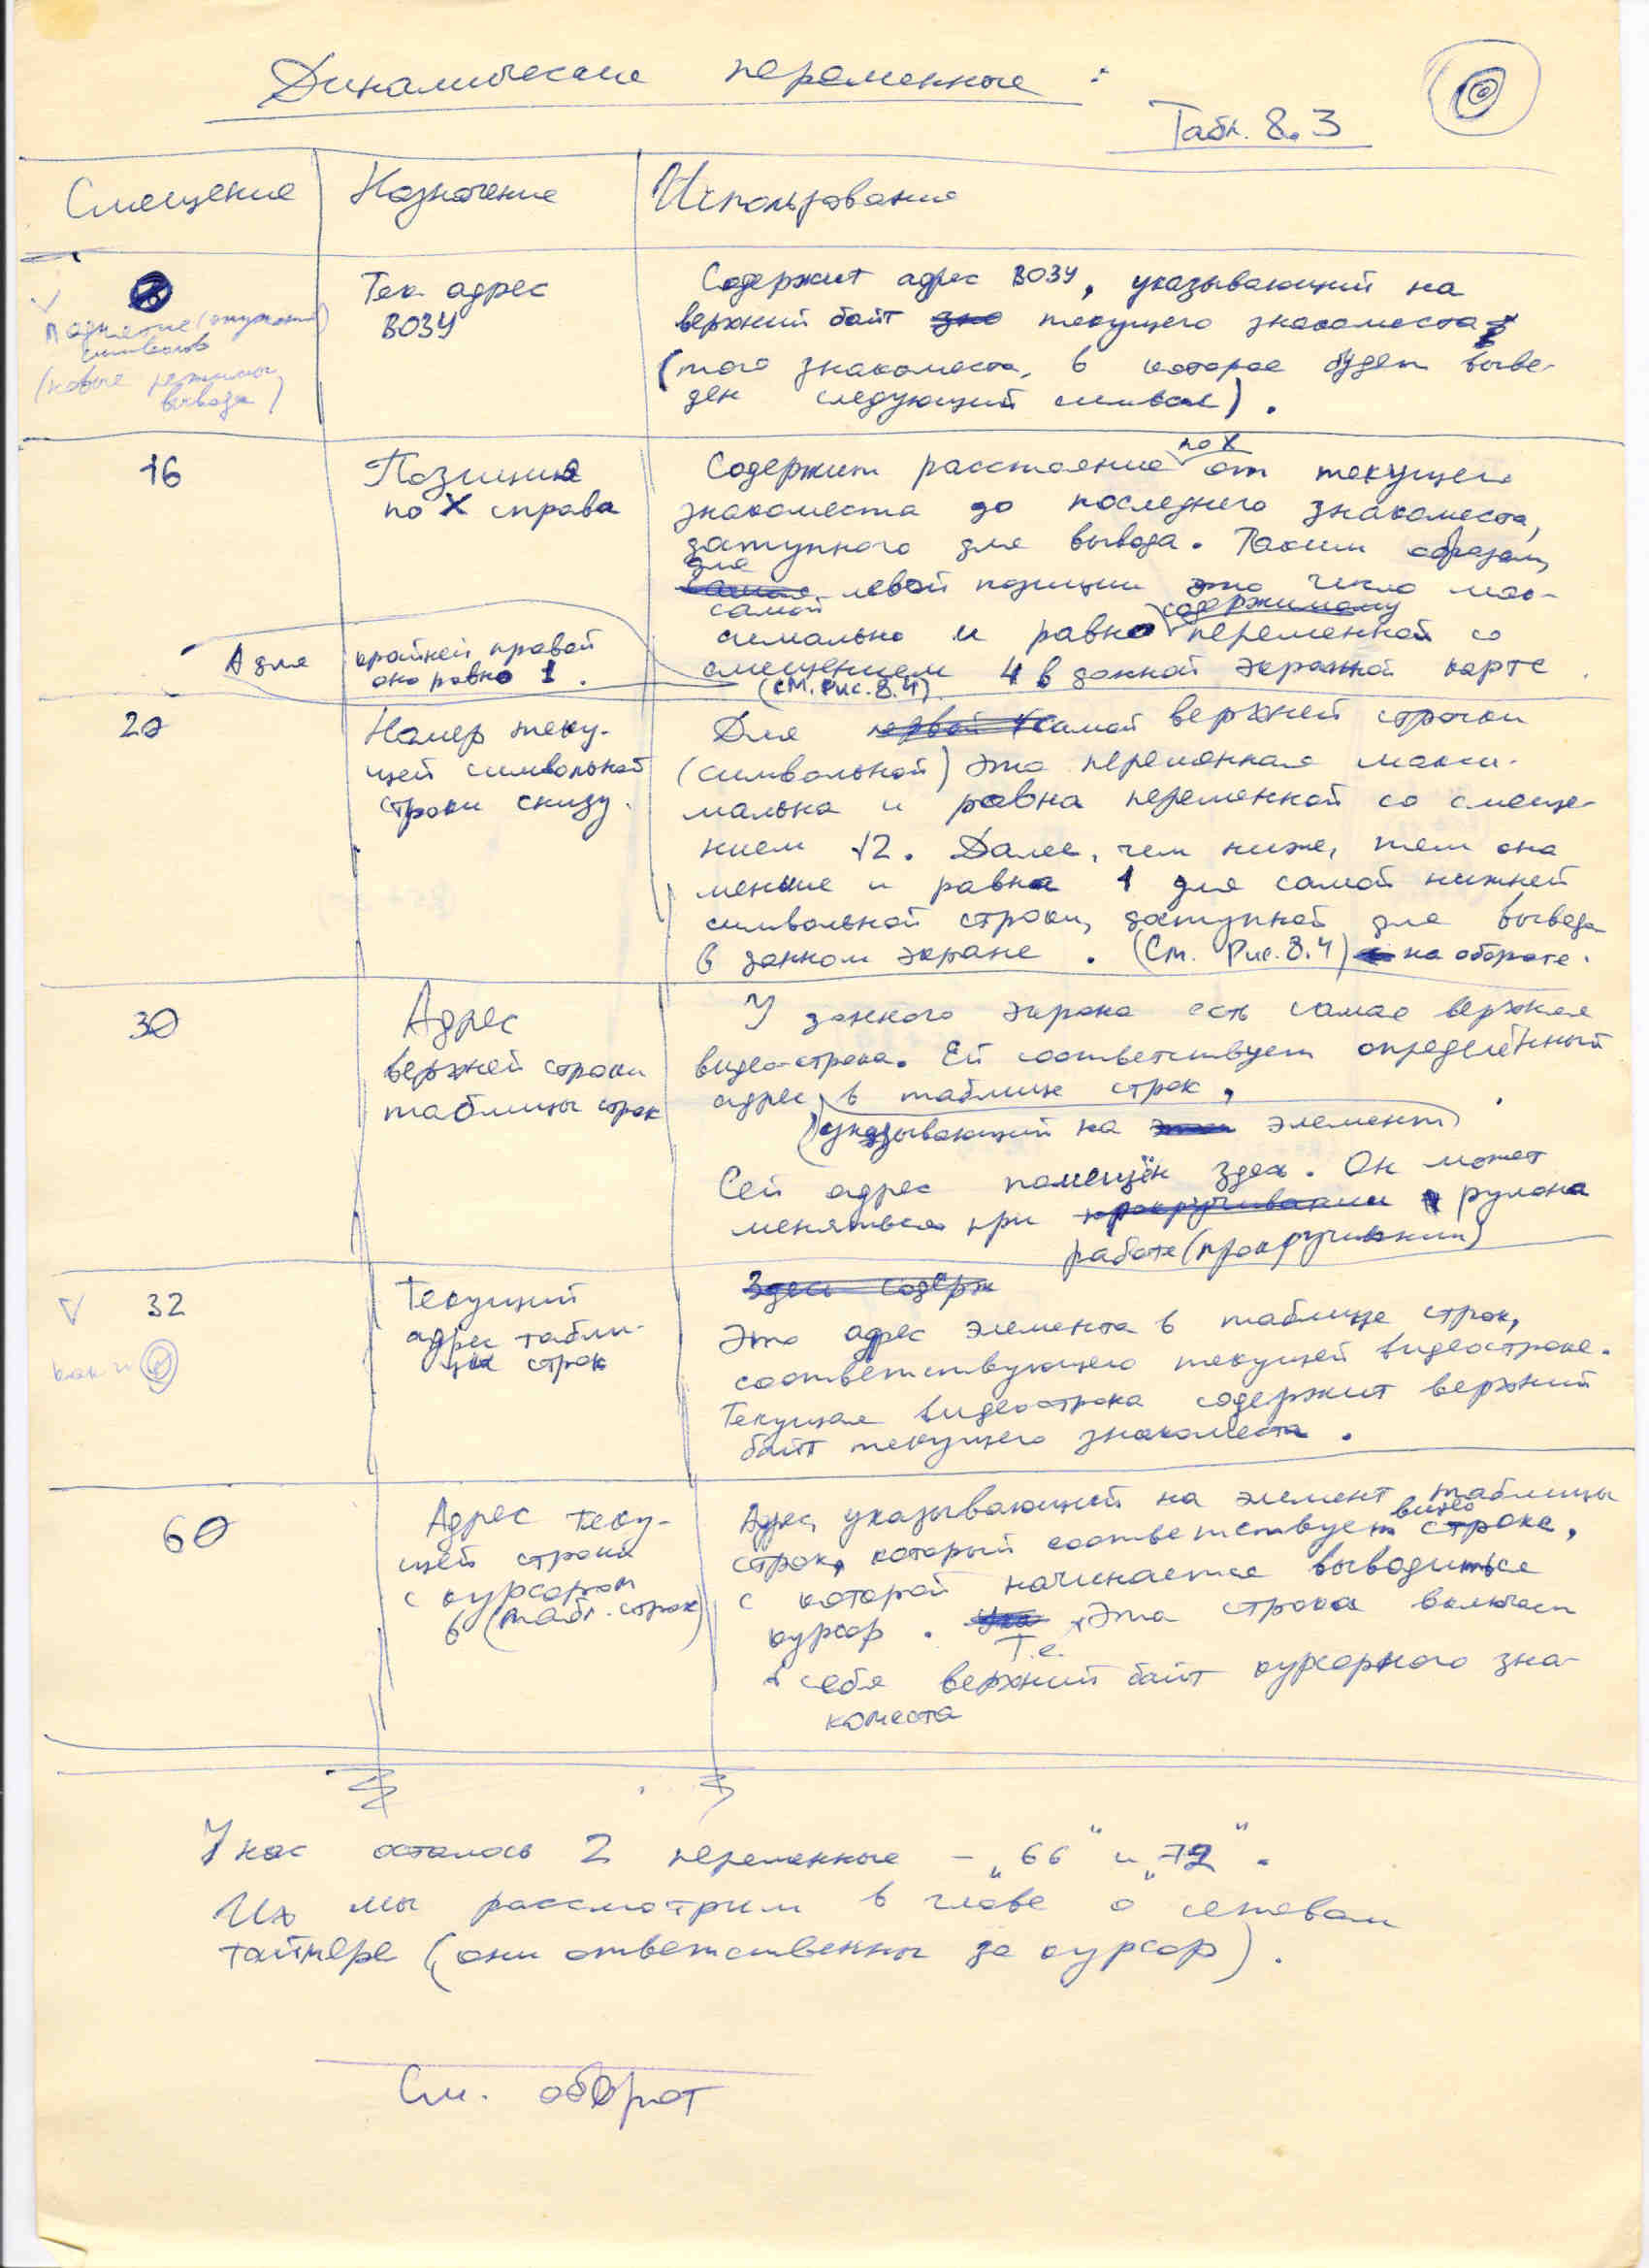 Динамические переменные :
Табл. 8.3
Смещение Назначение Использование
0 Тек. адрес
ВОЗУ
поднятие (опускание)
символов
(новые режимы
вывода)
Содержит адрес ВОЗУ, указывающий на
верхний байт зна текущего знакоместа
(того знакоместа, в которое будет выве-
ден следующий символ).
16 Позиция
по X справа
Содержит расстояние по X от текущего
знакоместа до последнего знакоместа,
доступного для вывода. Таким образом,
для
самой левой позиции это число мак-
самой содержимому
симально и равно переменной со
смещением 4 в данной экранной карте.
(см. рис. 8.4)
А для крайней правой
оно равно 1.
20 Номер теку-
щей символьной
строки снизу.
Для первой самой верхней строки
(символьной) эта переменная макси-
мальна и равна переменной со смеще-
нием 12. Далее, чем ниже, тем она
меньше и равна 1 для самой нижней
символьной строки, доступной для вывода
в данном экране. (См. Рис. 8.4) на обороте.
30 Адрес
верхней строки
таблицы строк
У данного экрана есть самая верхняя
видеострока. Ей соответствует определённый
адрес в таблице строк,
(указывающий на элемент)
Сей адрес помещён здесь. Он может
меняться при прокручивании рулона
работе (прокручивании)
32 Текущий
адрес табли-
цы строк
как и 0
Здесь содерж
Это адрес элемента в таблице строк,
соответствующего текущей видеостроке.
Текущая видеострока содержит верхний
байт текущего знакоместа.
60 Адрес теку-
щей строки
с курсором
в (табл. строк)
Адрес, указывающий на элемент таблицы
видео
строк, который соответствует строке,
с которой начинается выводиться
курсор. Т.е. Эта строка включает
в себя верхний байт курсорного зна-
коместа
У нас осталось 2 переменные – „66" и „72".
Их мы рассмотрим в главе о сетевом
таймере (они ответственны за курсор).
См. оборот